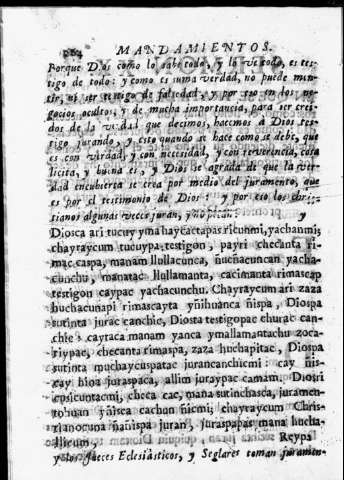 204 MANDAMIENTOS.
Porque Dios como lo sabe todo, y lo ve todo, es tes-
tigo de todo: y como es suma verdad, no puede men-
tir, ni ser testigo de falsedad, y por eso en los ne-
gocios ocultos, y de mucha importancia, para ser crei-
dos de la verdad que decimos, hacemos à Dios tes-
tigo jurando, y esto quando se hace como se debe, que
es con verdad, y con necesidad, y con reverencia, cosa
licita, y buena es, y Dios se agrada de que la ver-
dad encubierta se crea por medio del juramento, que
es por el testimonio de Dios: y por eso los chris-
tianos algunas veces juran, y no pecan.
Diosca ari tucuy yma haycactapas ricunmi, yachanmi,
chayraycum tucuypa testigon, payri checanta ri-
mac caspa, manam llullacunca, ñucñacuncan yacha-
cunchu, manatac llullamanta, cacimanta rimascap
testigon caypac yachacunchu. Chayraycum ari zaza
huchacunapi rimascayta yñihuanca ñispa, Diospa
sutinta jurac canchic, Diosta testigopac churac can-
chic caytaca manam yanca ymallamantachu zoca-
riypac, checanta rimaspa, zaza huchapitac, Diospa
sutinta muchaycuspatac jurancanchicmi: cay ñis-
cay hina juraspaca, allim juraypac camam. Diosri
checa cac, mana sutinchasca, juramen-
to huan yñisca cachun ñicmi, chayraycum Chris-
tianocuna ñañispa juran, juraspapas mana hucha-
llicum. Reyps
y los Jueces Eclesiásticos, y Seglares toman juramen-